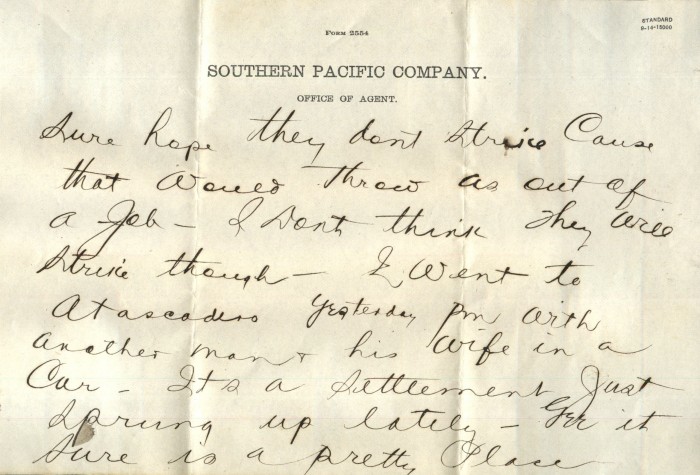 Form 2554
STANDARD
6-14-15000
SOUTHERN PACIFIC COMPANY.
OFFICE OF AGENT.
Sure hope they dont strike Cause
that would throw us out of
a Job - I Dont think They will
strike though - I Went to
Atascadero Yesterday pm with
another man + his wife in a
Car - Its a settlement Just
sprung up lately - Gee it
sure is a pretty Place